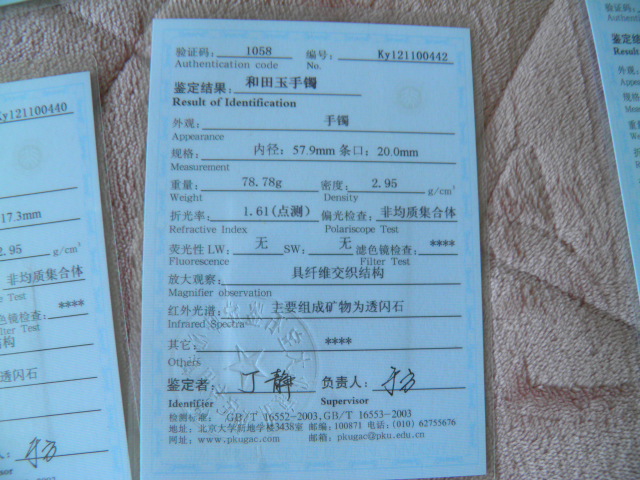 验证码: 1058 编号: Ky121100442
Authentication code No.
鉴定结果: 和田玉手镯
Result of Identification
外观: 手镯
Appearance
规格: 内径: 57.9mm 条口: 20.0mm
Measurement
重量: 78.78g 密度: 2.95 g/cm³
Weight Density
折光率: 1.61(点测) 偏光检查: 非均质集合体
Refractive Index Polariscope Test
荧光性 LW: 无 SW: 无 滤色镜检查: ****
Fluorescence Filter Test
放大观察: 具纤维交织结构
Magnifier observation
红外光谱: 主要组成矿物为透闪石
Infrared Spectra
其它: ****
Others
鉴定者: 丁静 负责人:
Identifier Supervisor
检测标准: GB/T 16552-2003, GB/T 16553-2003
地址: 北京大学新地学楼3438室 邮编: 100871 电话: (010) 62755676
网址: www.pkugac.com 邮箱: pkugac@pku.edu.cn
Ky121100440
17.3mm
2.95 g/cm³
非均质集合体
Test
检查: ****
Test
结构
透闪石
人:
sor
鉴定结
Result
外观:
Appe
规格
Mea
重
W